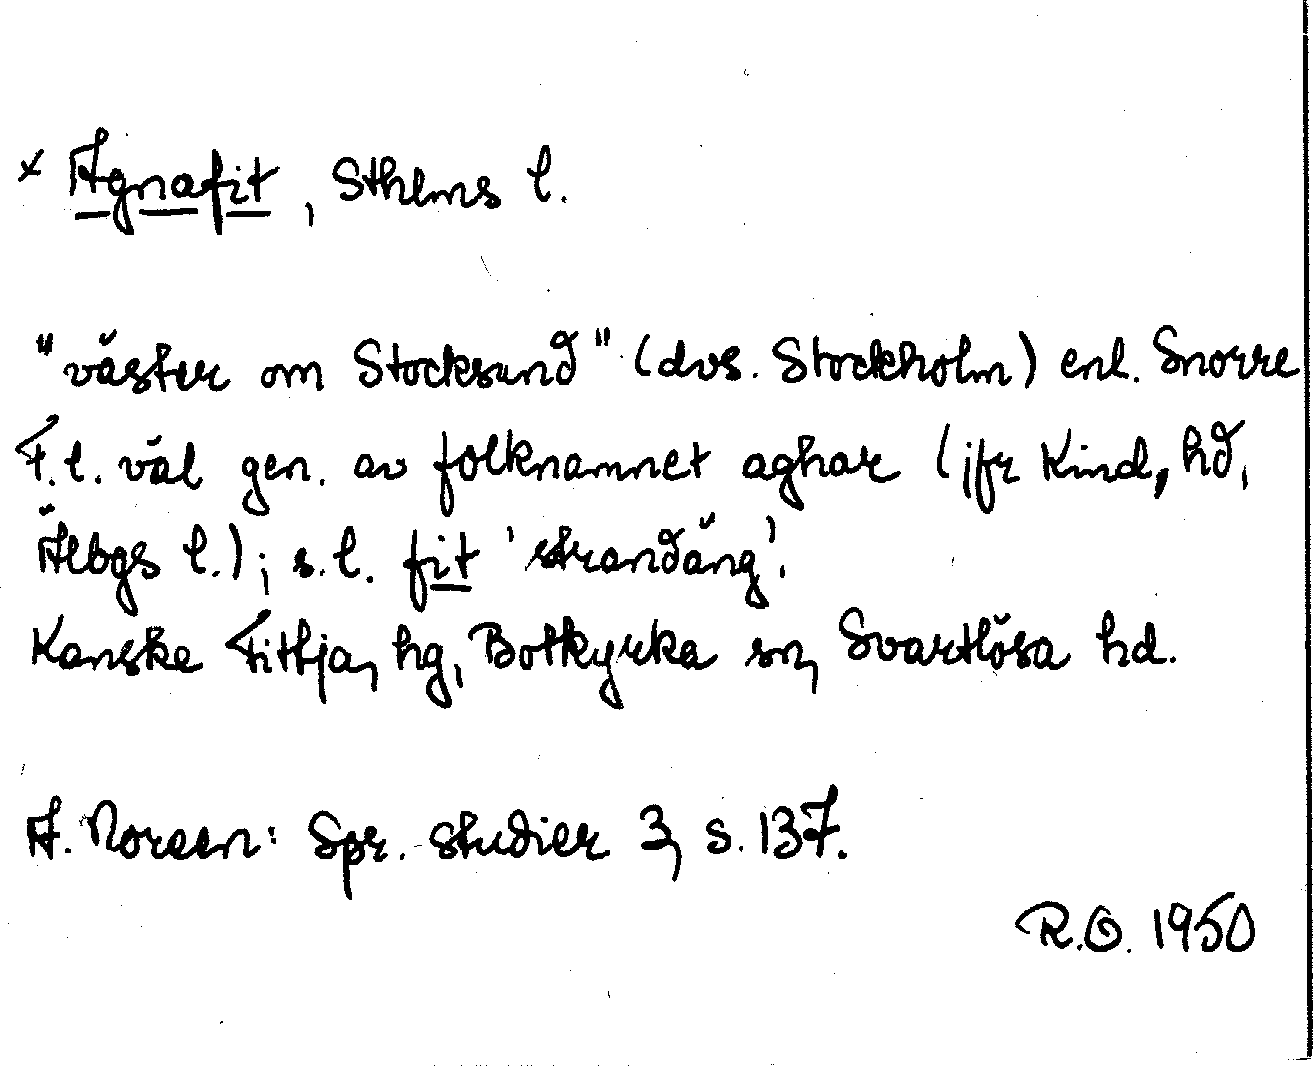 × Agnafit, Sthlms l.
"väster om Stocksund" (dvs. Stockholm) enl. Snorre
F.l. väl gen. av folknamnet aghar (jfr Kind, hd,
Älbgs l.); s.l. fit 'strandäng'.
Kanske Fittja, hg, Botkyrka sn, Svartlösa hd.
A. Noreen: Spr. studier 3, s. 137.
R.O. 1950